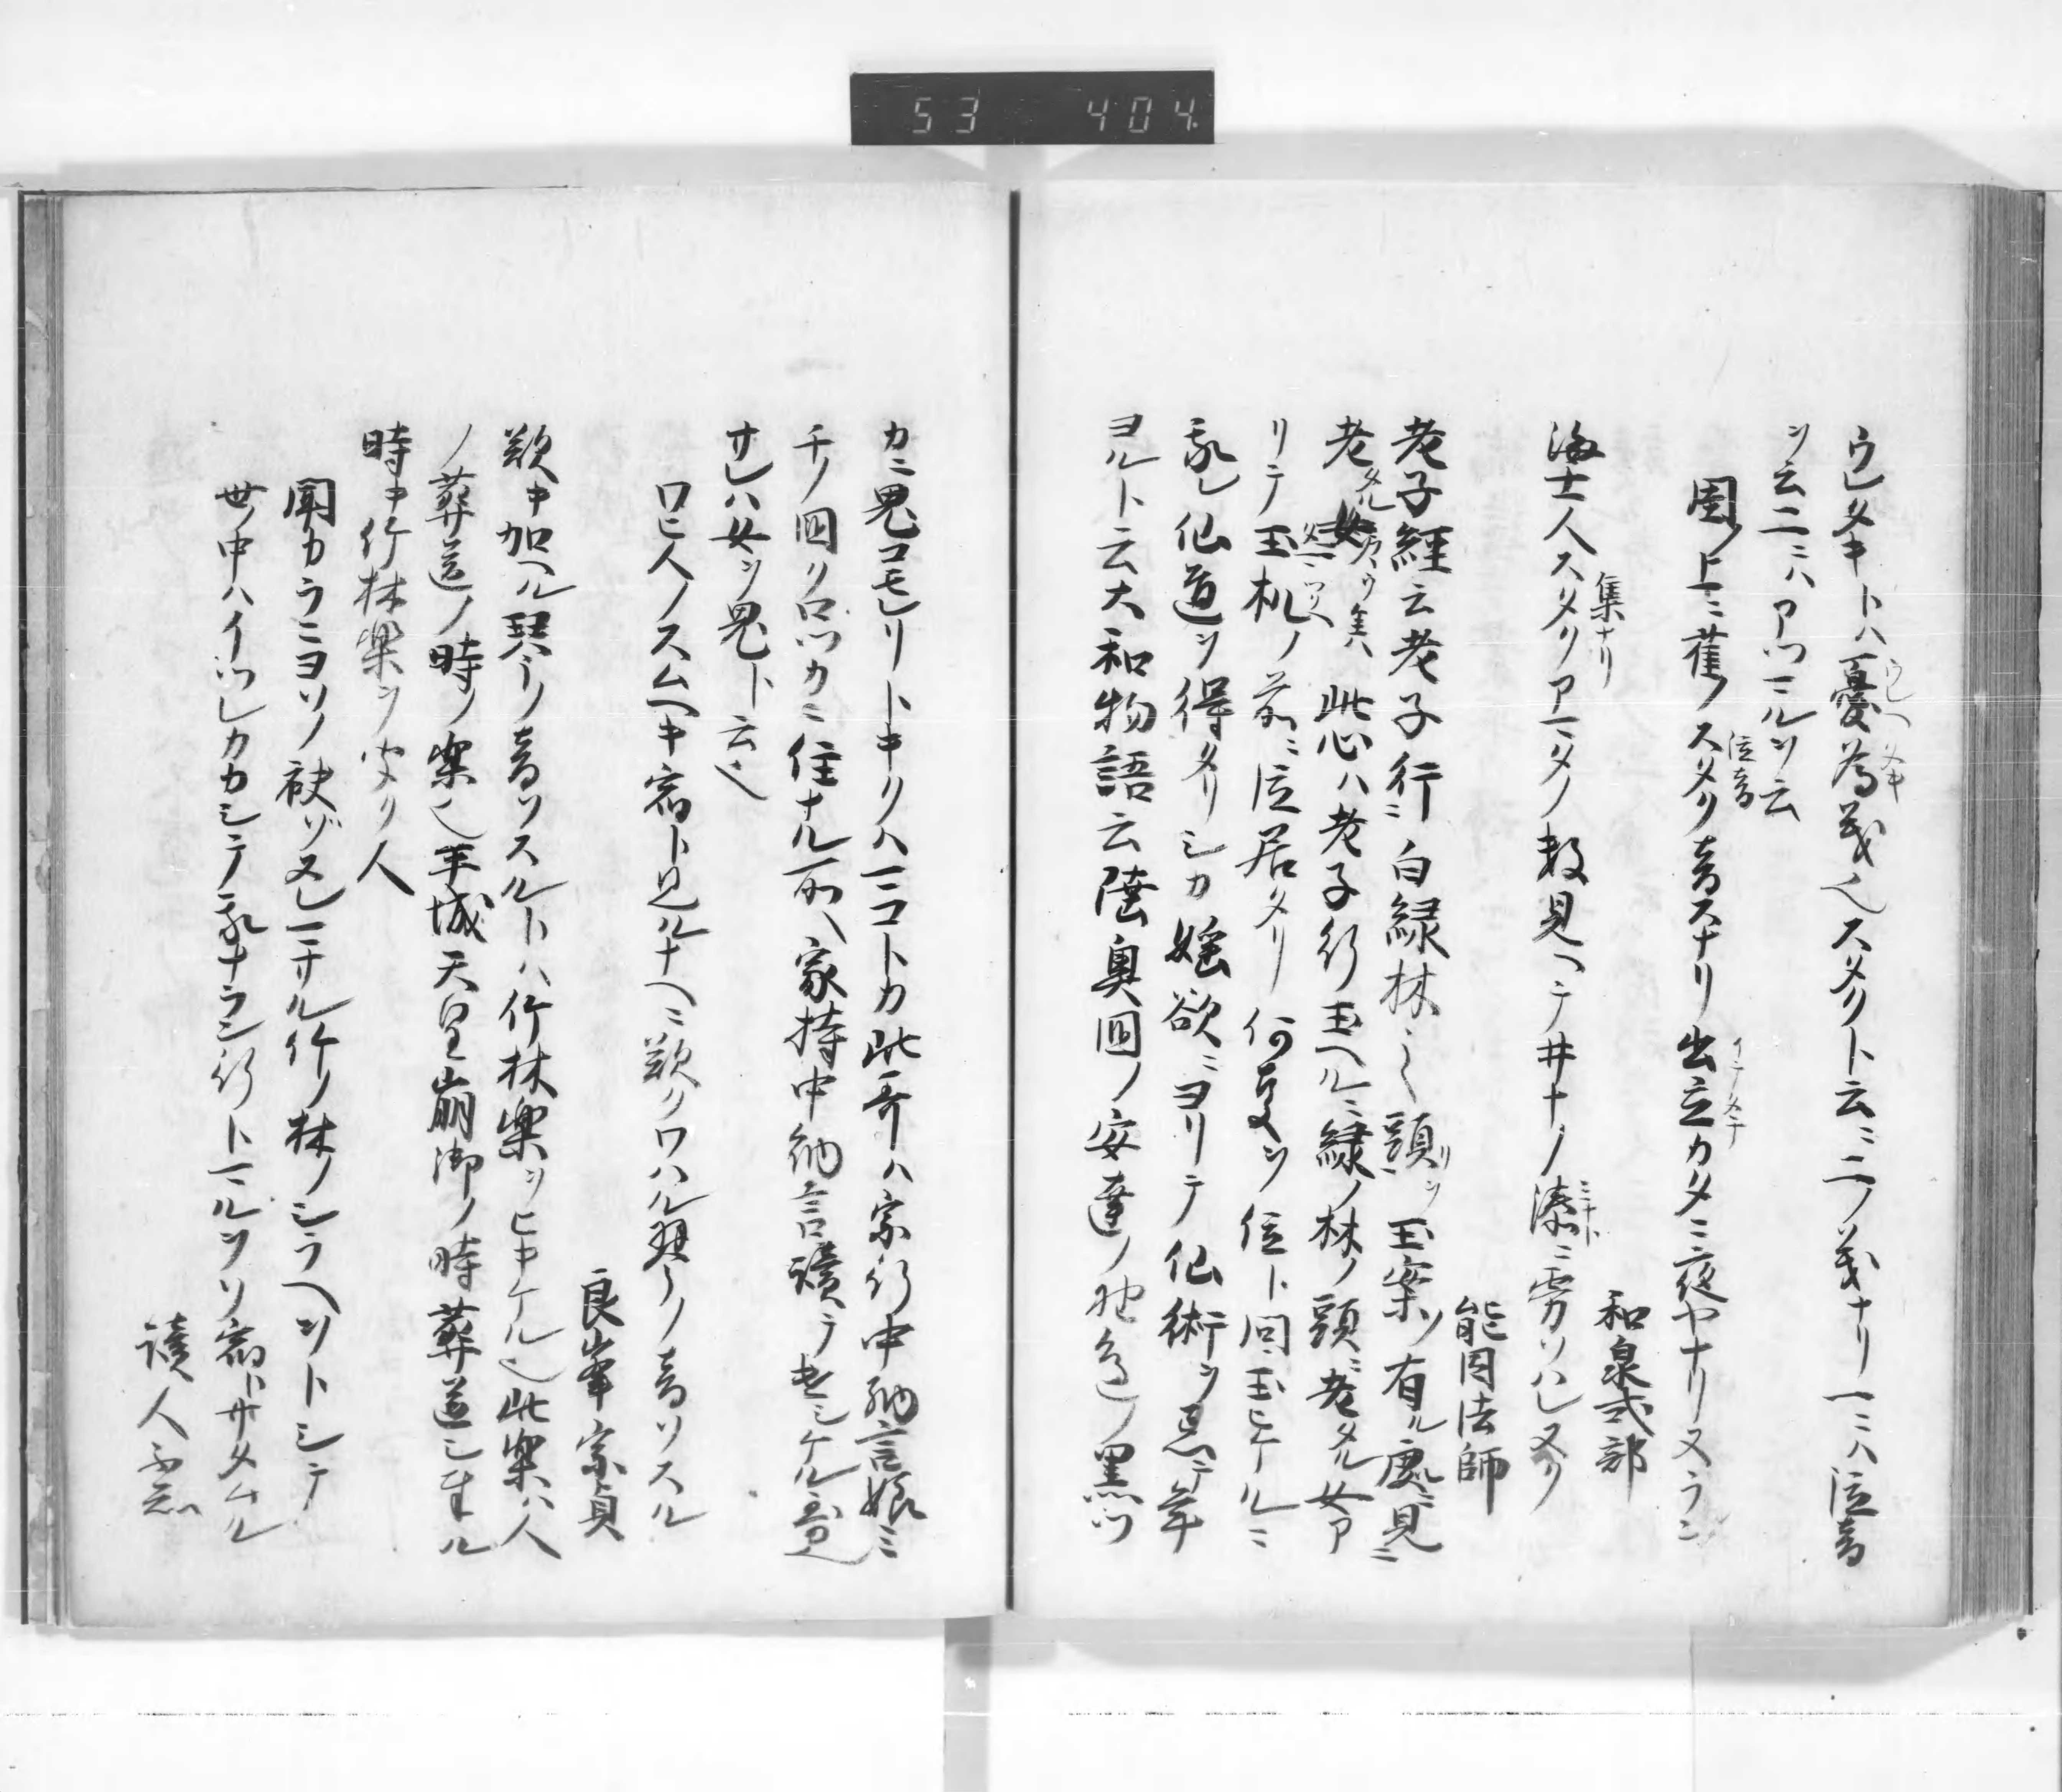 53 404
ウレタキトハ憂為義也スタクト云ニ二ノ義ナリ一ニハ泣音
ウレヘタキ
ヲ云二ニハアツマルヲ云
園ノ上ニ萑ノスタク音スナリ出立カタニ夜ヤナリヌラン
泣音
イテタチ
和泉式部
海士人スタクアマタノ数見ヘテ井ナノ湊ニ雰ソハレヌク
集ナリ
ミナト
能因法師
老子経云老子行ニ白緑林之頭ニ玉案ソ有ル処ニ見ニ
リヲ
老タル女 此心ハ老子行玉ヘルニ緑ノ林ノ頭ニ老タル女ア
リテ玉机ノ前ニ泣居タリ何事ヲ泣ト問玉ヒケルニ
我レ仙道ヲ得タリシカ婬欲ニヨリテ仙術ヲ忘テ年
ヨルト云大和物語云陸奥国ノ安達ノ 黒ツ
カニ鬼コモレリトキクハマコトカ此哥ハ宗行中納言娘ミ
チノ国ノ黒ツカニ住ナル所ヘ家持中納言読テ遣シケル意
サレハ女ヲ鬼ト云也
ワヒ人ノスムヘキ宿ト見ルナヘニ歎クワハル琴ノ音ソスル
良峯宗貞
歎キ加ヘル琴ノ音ソスルトハ竹林楽ヲヒキケル也此楽ハ人
ノ葬送ノ時ノ楽也平城天皇崩御ノ時葬送シ奉ル
時キ竹林楽ヲ 人
聞カラニヨソノ袂ゾヌレマサル竹ノ林ノシラヘヲトシテ
世ノ中ハイツレカカシテ我ナラン行トマルヲソ宿トサタムル
読人不知